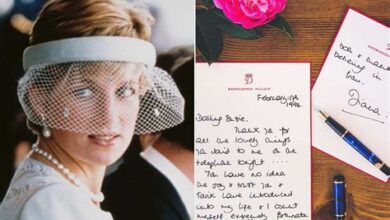 KENSINGTON PALACE
February 5th
1996.
Darling Susie,
Thank you for
all the lovely things
you said to me on the
telephone tonight ....
You have no idea
the joy & trust you &
Tarik have introduced
into my life & I count
myself extremely fortunate
believing in
him.
Diana.